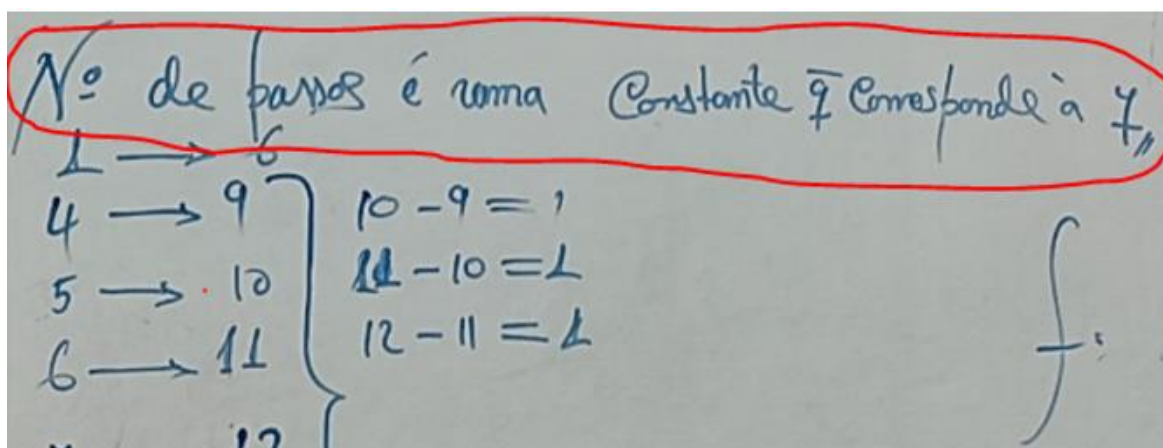 Nº de passos é uma Constante q̄ Corresponde à 7,,
1 → 6
4 → 9 10 - 9 = 1
5 → 10 11 - 10 = 1
6 → 11 12 - 11 = 1
12